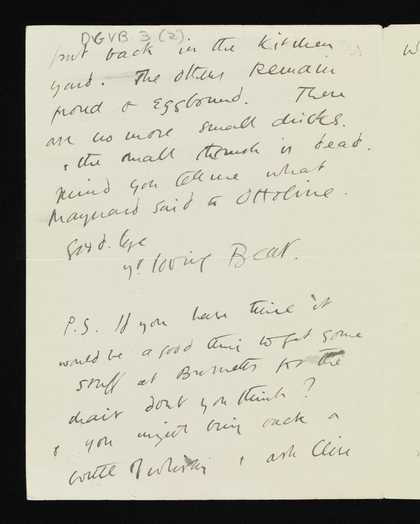 DGVB 3 (2).
put back in the kitchen
yard. The others remain
proud & Eggbound. There
are no more small ducks.
& the small thrush is dead.
Mind you tell me what
Maynard said to Ottoline.
Good bye
yr loving Bear.
P.S. If you have time it
would be a good thing to get some
stuff at Burnetts for the
chair dont you think?
& you might bring back a
bottle of whisky & ask Clive
W